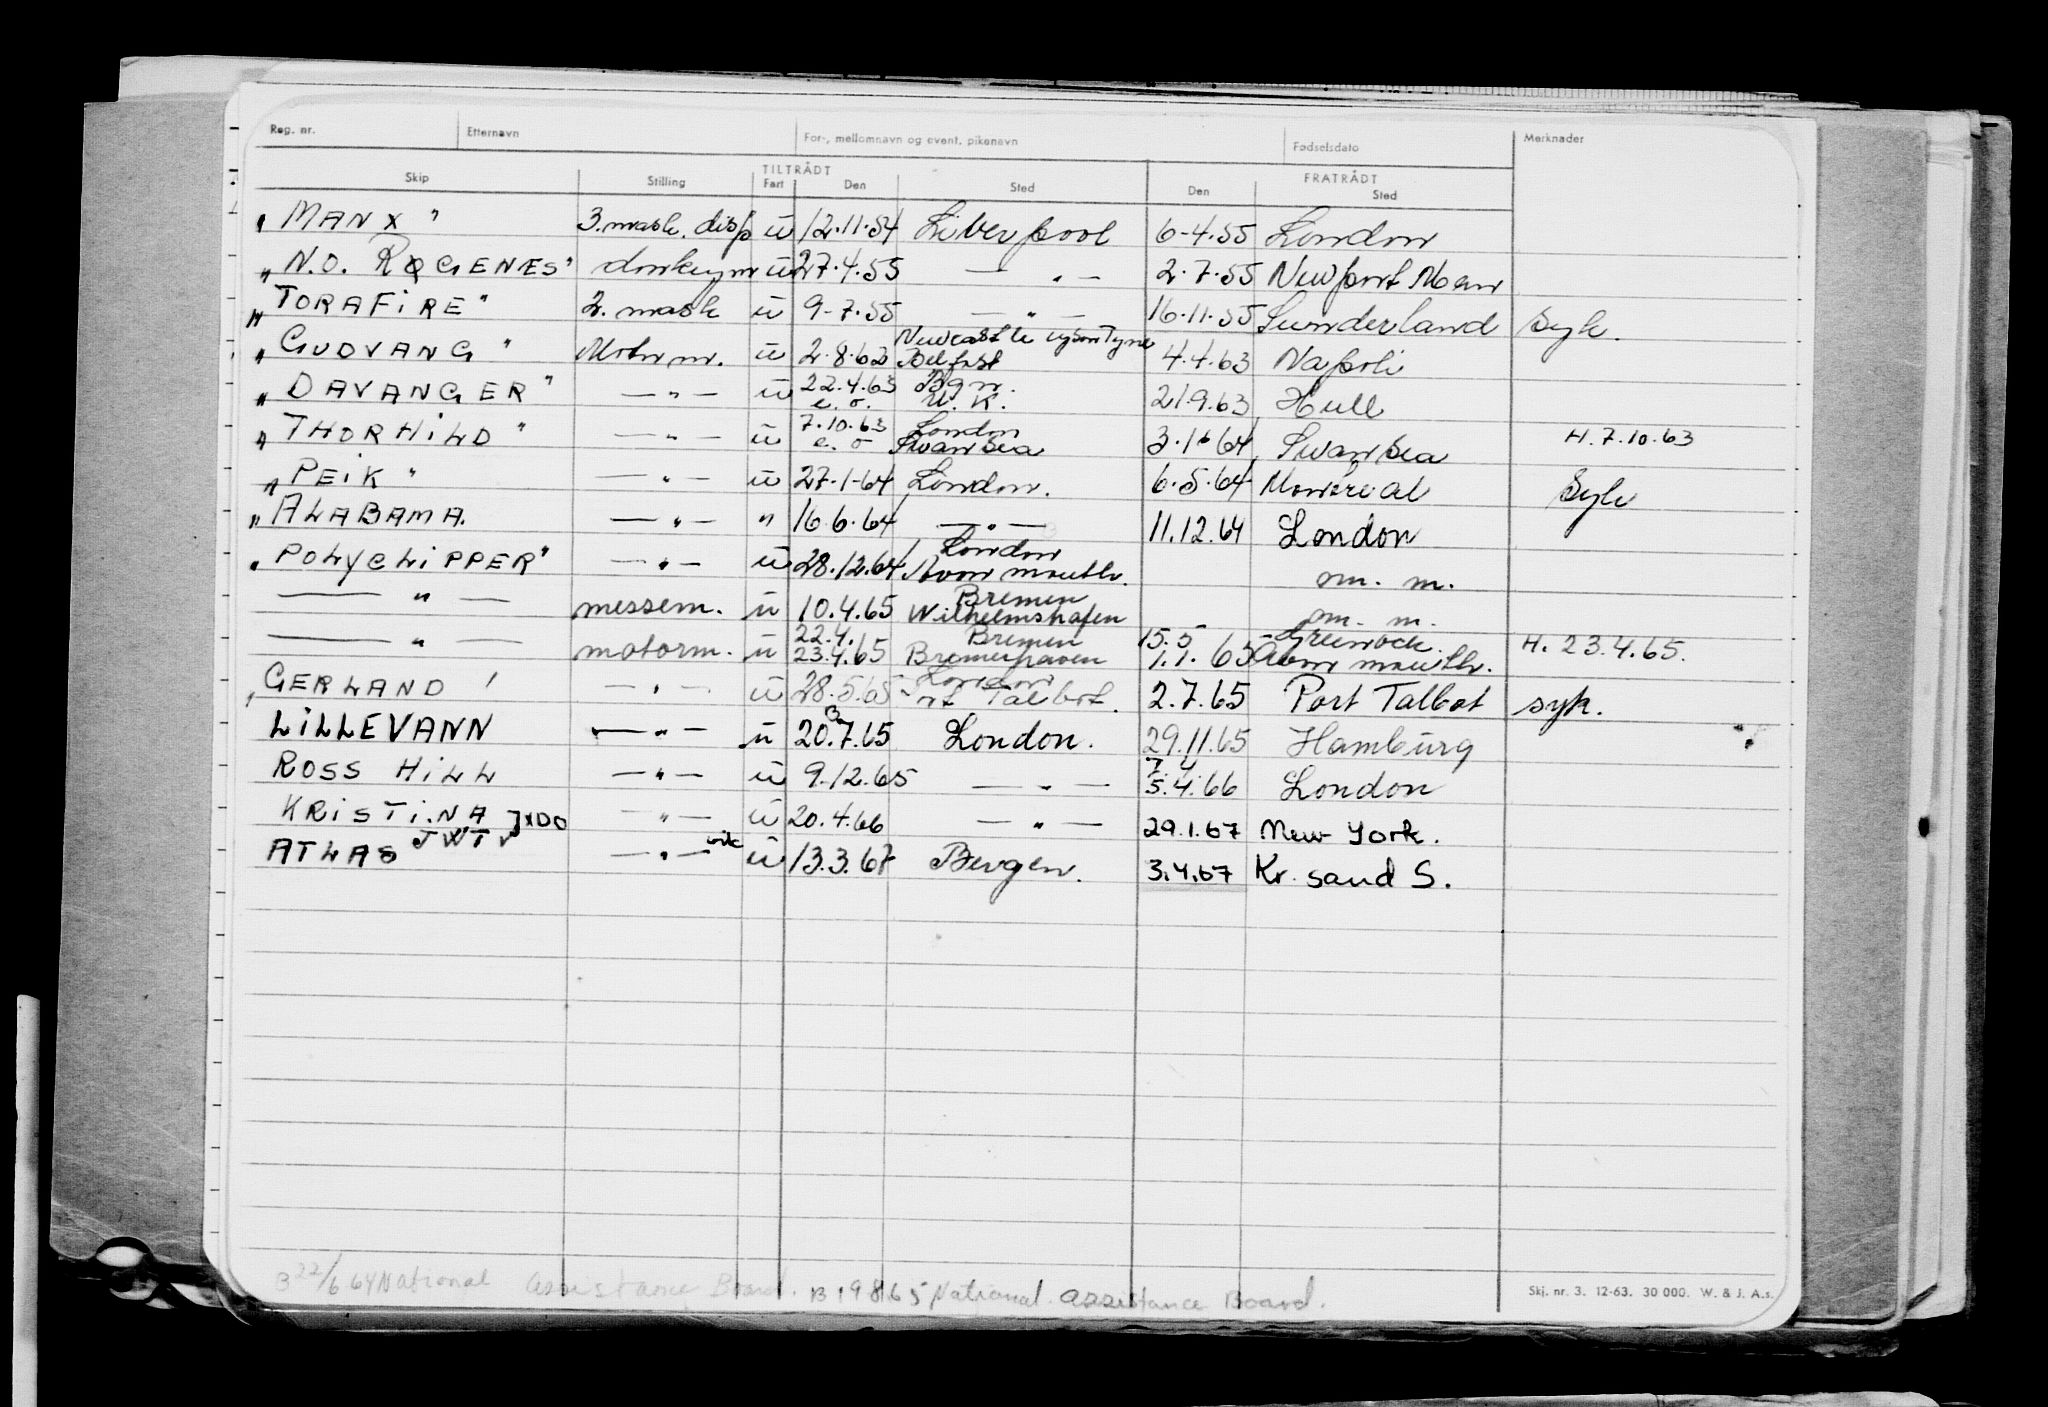 Reg. nr. Etternavn For-, mellomnavn og event. pikenavn Fødselsdato Merknader
TILTRÅDT FRATRÅDT
Skip Stilling Fart Den Sted Den Sted
"MANX" 3. mask. disp u 12.11.54 Liverpool 6-4.55 London
"N.O. RØGENES" donkeym u 27.4.55 — " — 2.7.55 Newport Mon
"TORAFIRE" 2. mask u 9-7.55 — " — 16.11.55 Sunderland Syk.
"GUDVANG" Motorm. u 2.8.62 Newcastle upon Tyne Belfast 4.4.63 Napoli
"DAVANGER" — " — u 22.4.63 e.o. Bgn. U.K. 21.9.63 Hull
"THORHILD" — " — u 7.10.63 e.o London Swansea 3.1.64 Swansea H. 7.10.63
"PEIK" — " — u 27-1-64 London. 6.5.64 Montreal Syk
"ALABAMA. — " — " 16.6.64 — " — 11.12.64 London
"POLYCLIPPER" — " — u 28.12.64 London Avonmouth. m. m.
— " — messem. u 10.4.65 Bremen Wilhelmshafen m. m.
— " — motorm. u 22.4. 23.4.65 Bremen Bremerhaven 15.5 1.1.65 Greenock. Avonmouth. H. 23.4.65.
"GERLAND' — " — u 28.5.65 London Prt Talbot. 2.7.65 Port Talbot syk.
LILLEVANN — " — u 20.7.65 London. 29.11.65 Hamburg
ROSS HILL — " — u 9.12.65 — " — 7.4 5.4.66 London
KRISTINA JXDO — " — u 20.4.66 — " — 29.1.67 New York.
ATLAS JWTV — " — vik u 13.3.67 Bergen. 3.4.67 Kr. sand S.
B 22/6 64 National Assistance Board. B 19865 National Assistance Board.
Skj. nr. 3. 12-63. 30 000. W. & J. A.s.